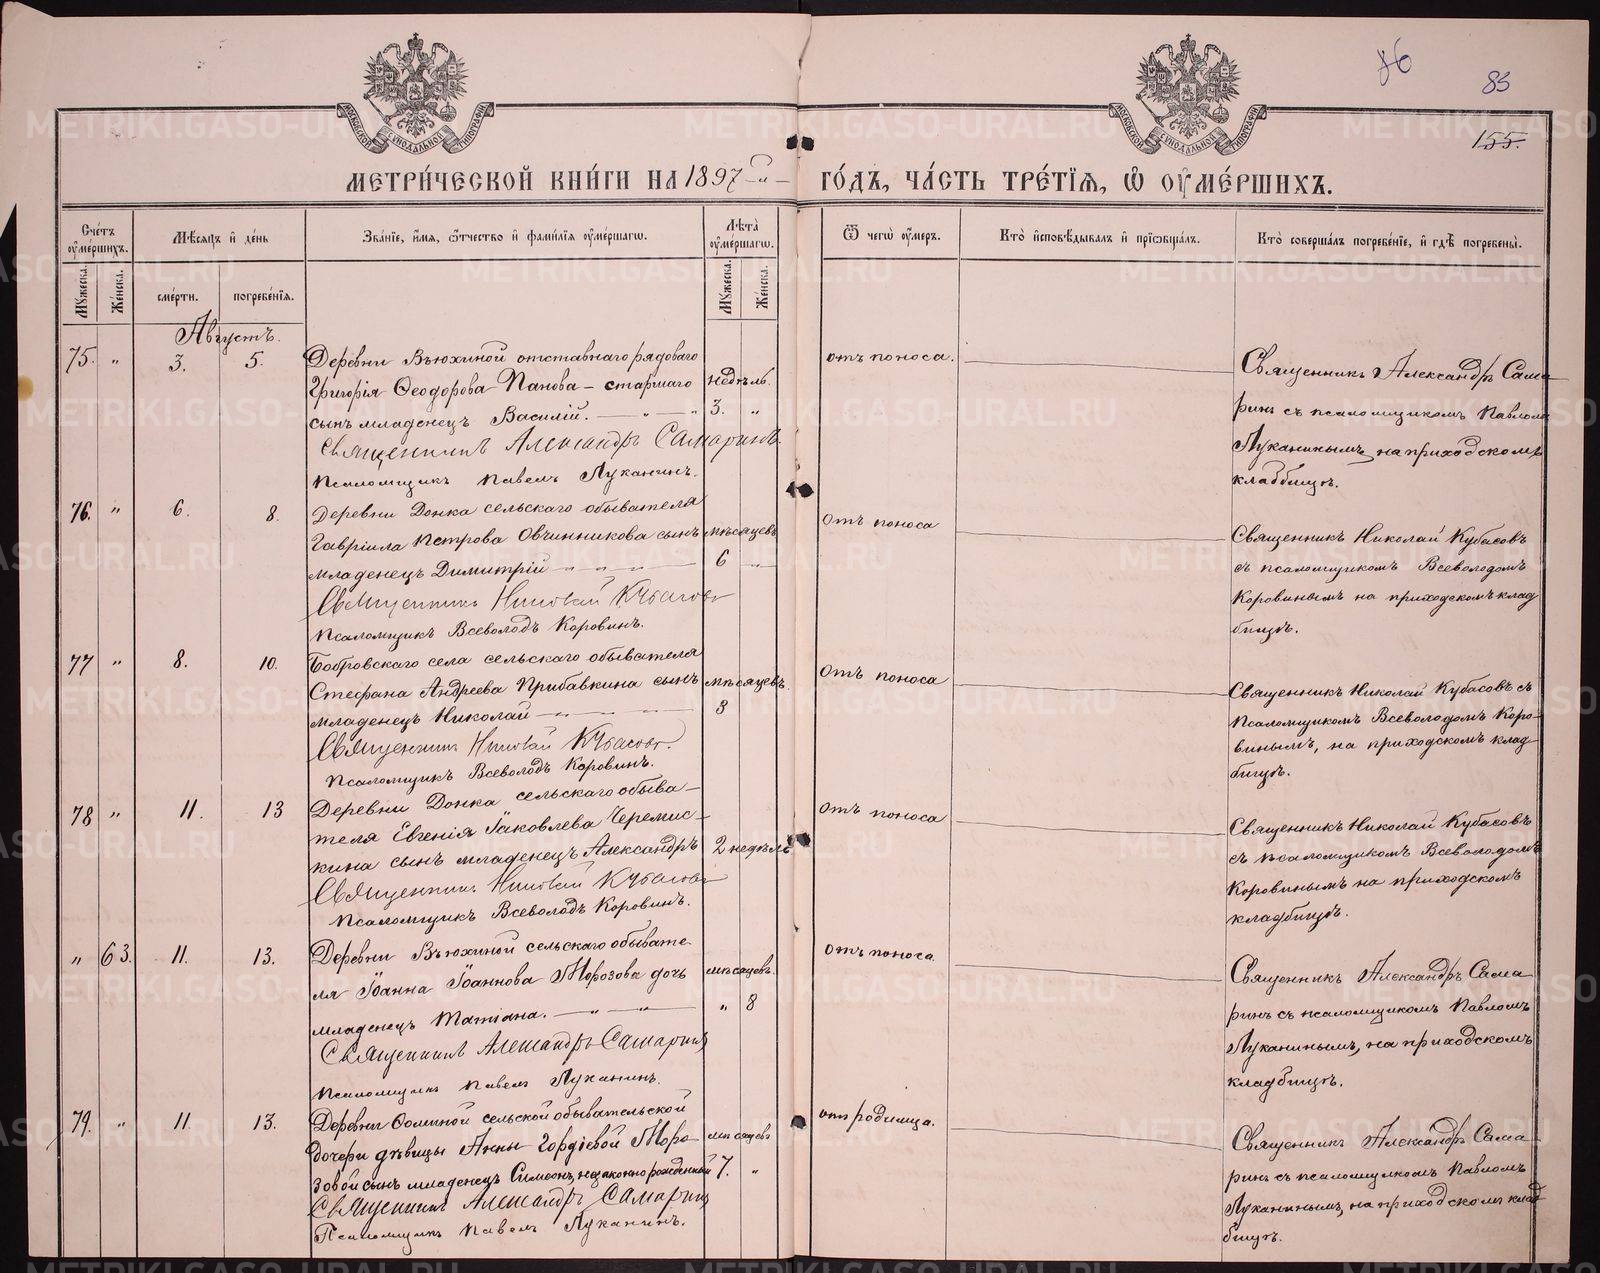 86
83
155.
МОСКОВСКОЙ СѴНОДАЛЬНОЙ ТИПОГРАФІИ
МОСКОВСКОЙ СѴНОДАЛЬНОЙ ТИПОГРАФІИ
МЕТРИ́ЧЕСКОЙ КНИ́ГИ НА 1897 ГО́ДЪ, ЧА́СТЬ ТРЕ́ТІЯ, Ѽ ОУМЕ́РШИХЪ.
Сче́тъ оумершихъ.
Мѣ́сяцъ и де́нь
Зва́нїе, и́мя, ѻ́тчество и фами́лїя оуме́ршагѡ.
Лѣта̀ оуме́ршагѡ.
Ѿ чегѡ̀ оу́меръ.
Кто̀ исповѣ́дывалъ и прїѡбща́лъ.
Кто̀ соверша́лъ погребе́нїе, и гдѣ̀ погребены̀.
Мужеска.
Же́нска.
сме́рти.
погребе́нїя.
Мужеска.
Же́нска.
Августъ.
75. " 3. 5. Деревни Вьюхиной отставнаго рядоваго
Григорія Ѳеодорова Панова - старшаго недѣль.
сынъ младенецъ Василій. — " — " 3. "
Священникъ Александръ Самаринъ.
Псаломщикъ Павелъ Луканинъ.
отъ поноса.
Священникъ Александръ Сама
ринъ съ псаломщикомъ Павломъ
Луканинымъ, на приходскомъ
кладбищѣ.
76. " 6. 8. Деревни Донка сельскаго обывателя
Гавріила Петрова Овчинникова сынъ мѣсяцевъ
младенецъ Димитрій — " — " — " — 6 "
Священникъ Николай Кубасовъ
Псаломщикъ Всеволодъ Коровинъ.
Отъ поноса
Священникъ Николай Кубасовъ
съ псаломщикомъ Всеволодомъ
Коровинымъ на приходскомъ клад
бищѣ.
77 " 8. 10. Бобровскаго села сельскаго обывателя
Стефана Андреева Прибавкина сынъ мѣсяцевъ.
младенецъ Николай — " — " — " — 3
Священникъ Николай Кубасовъ.
Псаломщикъ Всеволодъ Коровинъ.
Отъ поноса
Священникъ Николай Кубасовъ съ
псаломщикомъ Всеволодомъ Коро-
винымъ, на приходскомъ клад
бищѣ.
78 " 11. 13 Деревни Донка сельскаго обыва-
теля Евгенія Іаковлева Черемис-
кина сынъ младенецъ Александръ 2 недѣль
Священникъ Николай Кубасовъ
Псаломщикъ Всеволодъ Коровинъ.
Отъ поноса
Священникъ Николай Кубасовъ
съ псаломщикомъ Всеволодомъ
Коровинымъ на приходскомъ
кладбищѣ.
" 63. 11. 13. Деревни Вьюхиной сельскаго обывате-
ля Іоанна Іоаннова Морозова дочь мѣсяцевъ.
младенецъ Татіана. — " — " — " 8
Священникъ Александръ Самаринъ
Псаломщикъ Павелъ Луканинъ.
отъ поноса.
Священникъ Александръ Сама
ринъ съ псаломщикомъ Павломъ
Луканинымъ, на приходскомъ
кладбищѣ.
79. " 11. 13. Деревни Ѳоминой сельской обывательской
дочери дѣвицы Анны Гордіевой Моро- мѣсяцевъ
зовой сынъ младенецъ Симеонъ, незаконно рожденный 7. "
Священникъ Александръ Самаринъ
Псаломщикъ Павелъ Луканинъ.
от родимца.
Священникъ Александръ Сама
ринъ съ псаломщикомъ Павломъ
Луканинымъ, на приходскомъ клад
бищѣ.
METRIKI.GASO-URAL.RU